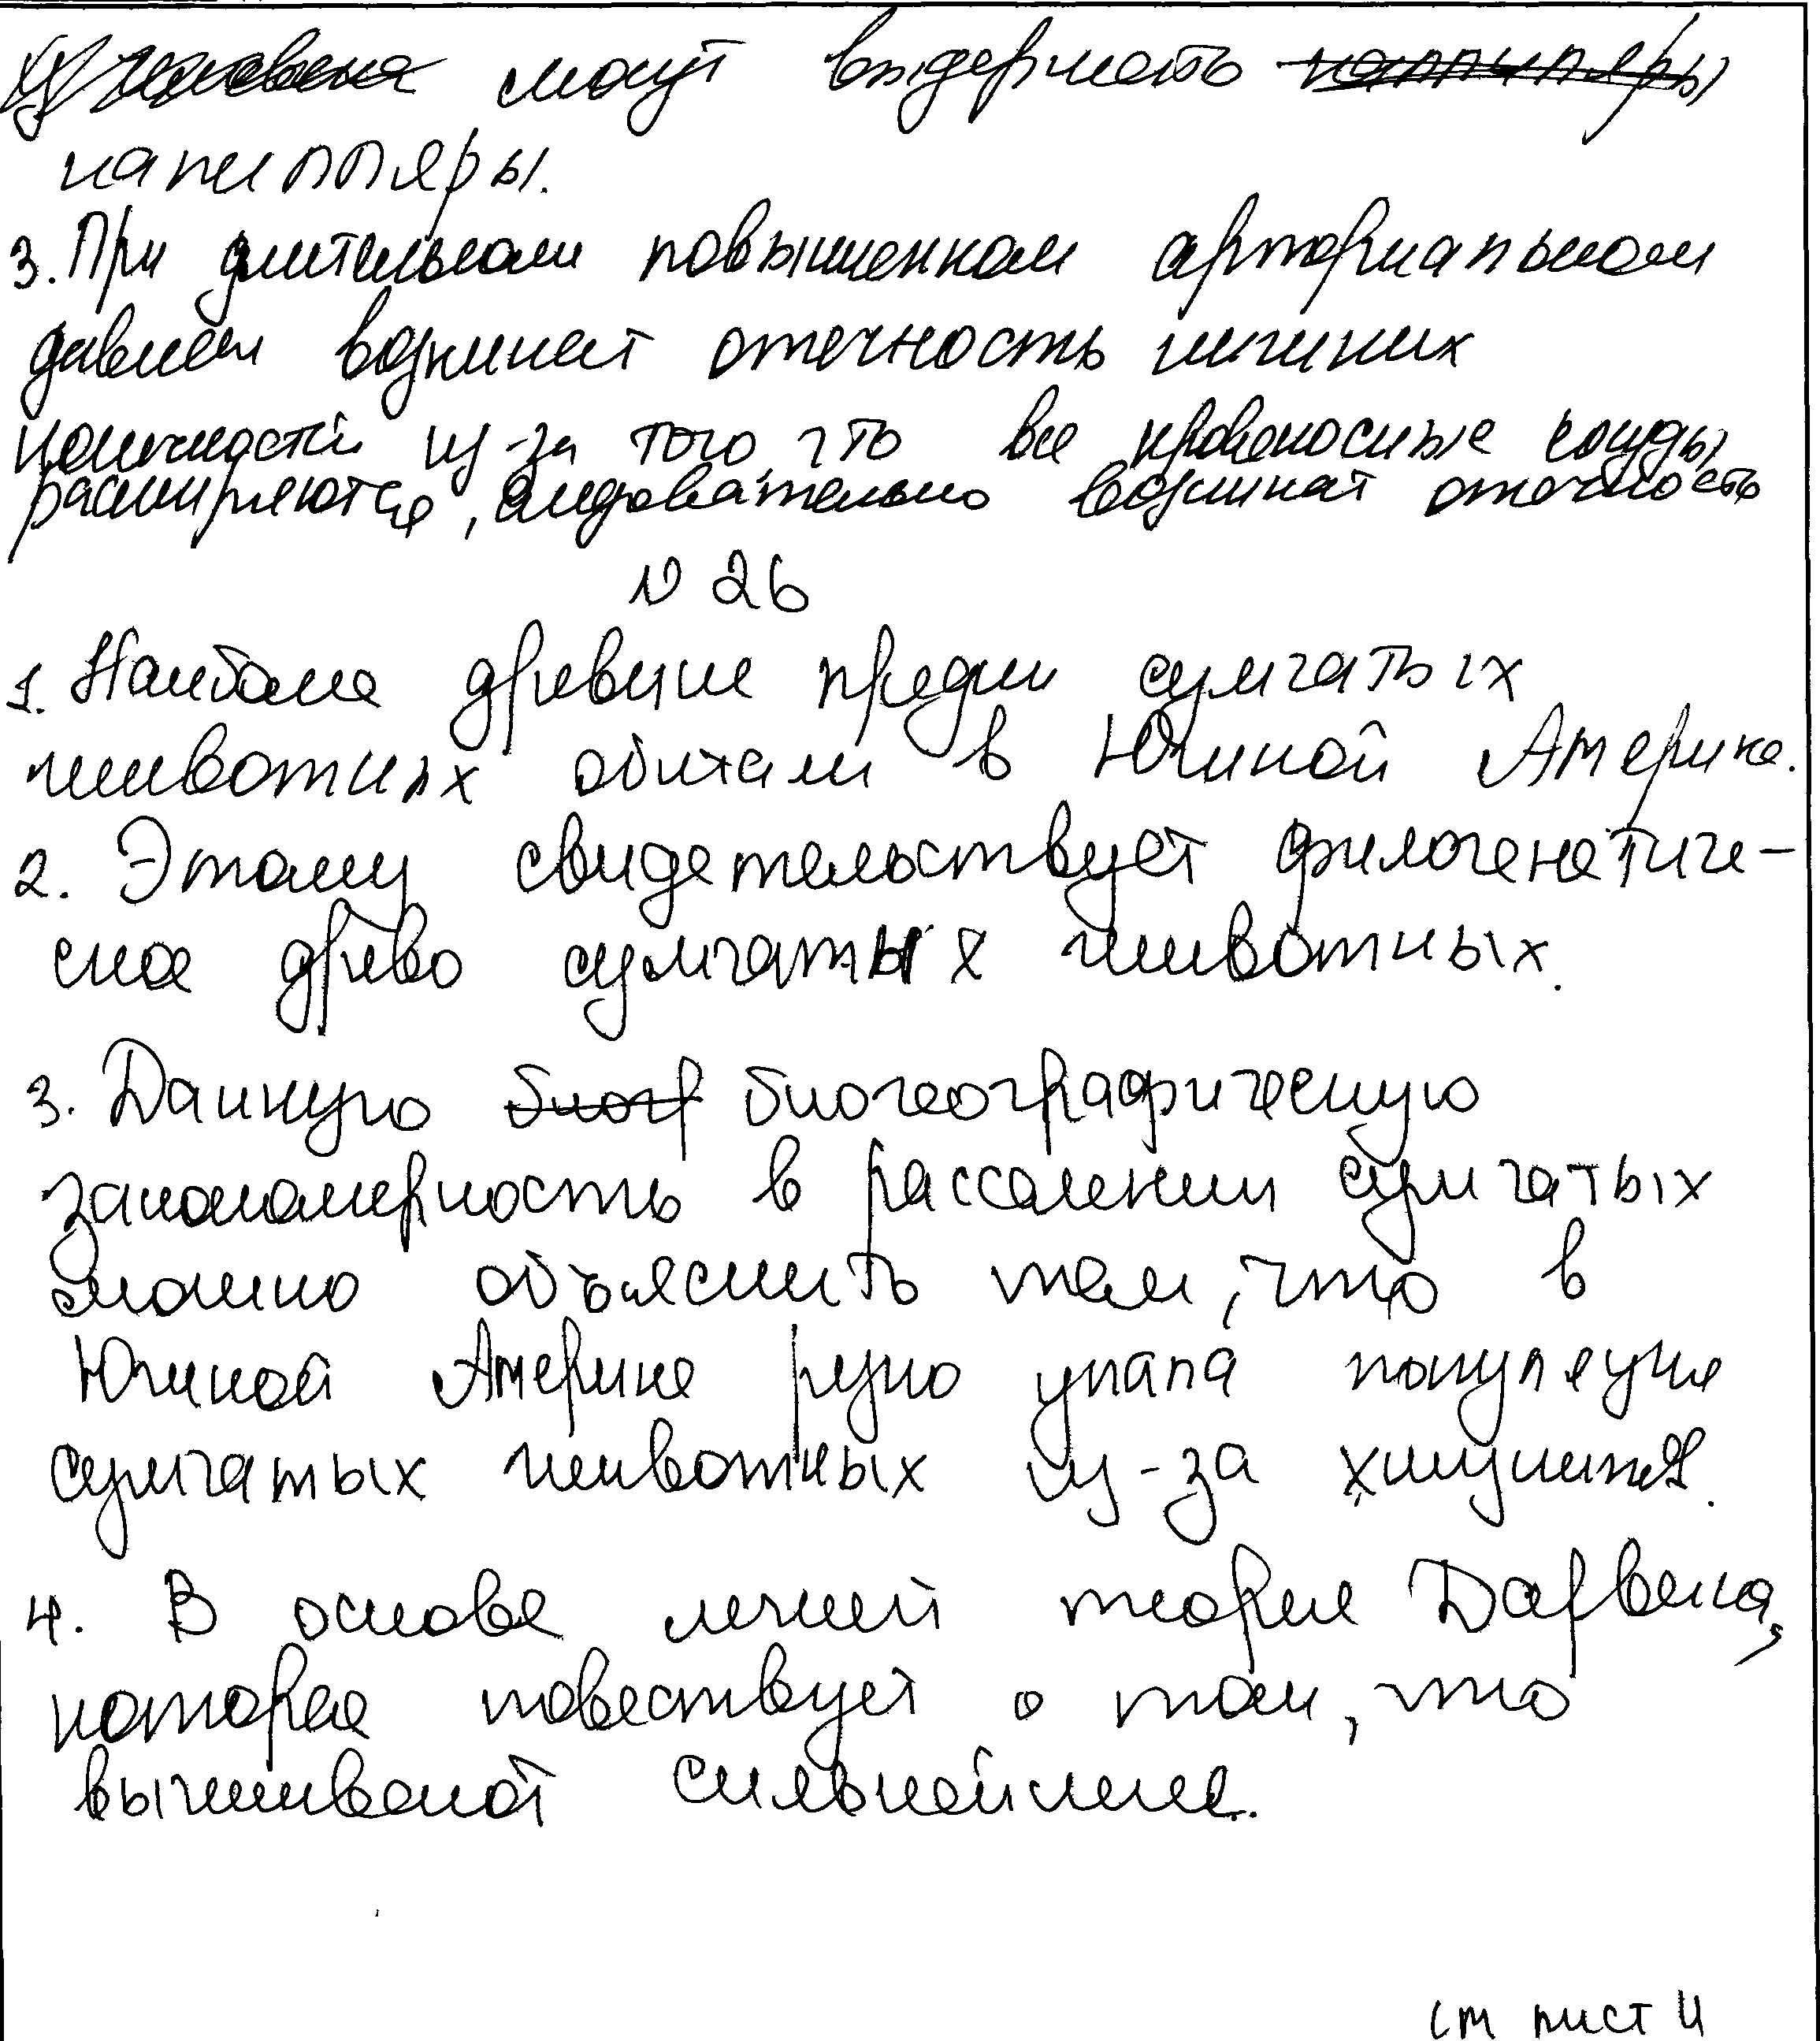 могут выдержать
капилляры.
3. При длительном повышенном артериальном
давлен возникает отечность нижних
конечностей из-за того, что все кровеносные сосуды
расширяются, следовательно возникает отечность
N 26
1. Наиболее древние предки сумчатых
животных обитали в Южной Америке.
2. Этому свидетельствует филогенетиче-
ское древо сумчатых животных.
3. Данную биогеографическую
закономерность в расселении сумчатых
можно объяснить тем, что в
Южной Америке резко упала популяция
сумчатых животных из-за хищников.
4. В основе лежит теория Дарвина,
которая повествует о том, что
выживают сильнейшие.
см лист 4